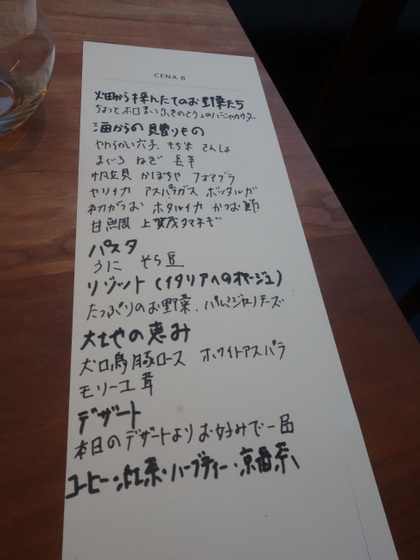 CENA B
畑から採れたてのお野菜たち
ちょっとホロ苦いふきのとうのバーニャカウダ
海からの贈りもの
やわらかい穴子 もち米 さんしょ
まぐろ ねぎ 長芋
帆立貝 かぼちゃ フォアグラ
ヤリイカ アスパラガス ボッタルガ
初がつお ホタルイカ かつお節
甘鯛 上賀茂タマネギ
パスタ
うに そら豆
リゾット(イタリアへのオマージュ)
たっぷりのお野菜、パルミジャーノチーズ
大地の恵み
犬口鳥豚ロース ホワイトアスパラ
モリーユ茸
デザート
本日のデザートよりお好みで一品
コーヒー・紅茶・ハーブティー・京番茶